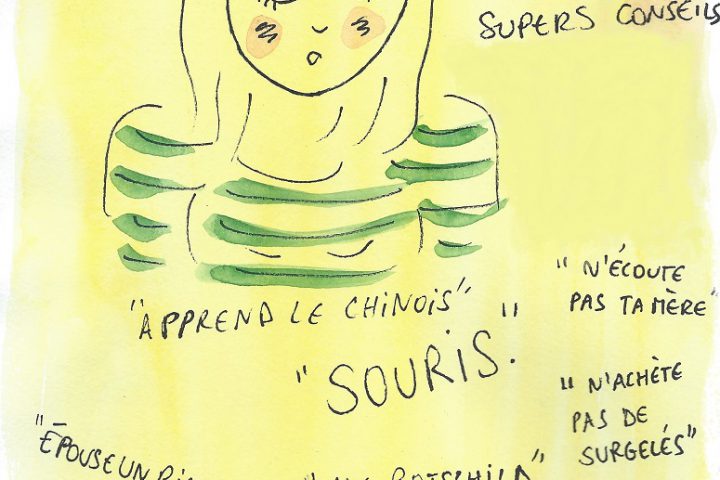 SUPERS CONSEILS
"APPREND LE CHINOIS"
"N'ÉCOUTE
PAS TA MÈRE"
"SOURIS."
"N'ACHÈTE
PAS DE
SURGELÉS"
"ÉPOUSE UN
ROTSCHILD"